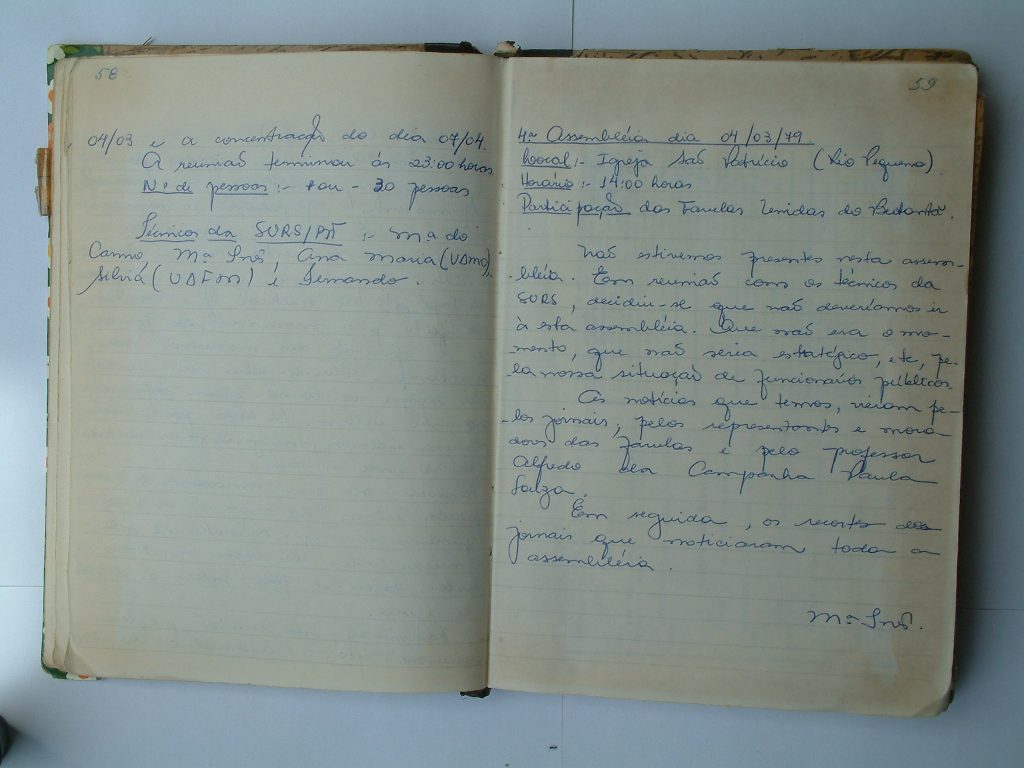 58
04/03 e a concentração do dia 07/04.
A reunião terminou às 23:00 horas
Nº de pessoas :- + ou - 30 pessoas
Técnicos da SURS/PM :- Mª do
Carmo, Mª Inês, Ana Maria (UAMO),
Silvia (UAFM) e Fernando.
59
4ª Assembléia dia 04/03/79.
Local :- Igreja São Patrício (Rio Pequeno)
Horário :- 14:00 horas
Participação das Favelas Unidas do Butantã.
Não estivemos presentes nesta assem-
bléia. Em reunião com os técnicos da
SURS, decidiu-se que não deveríamos ir
à esta assembléia. Que não era o mo-
mento, que não seria estratégico, etc, pe-
la nossa situação de funcionários públicos.
As notícias que temos, vieram pe-
los jornais, pelos representantes e mora
dores das favelas e pelo professor
Alfredo da Campanha Paula
Souza.
Em seguida, os recortes dos
jornais que noticiaram toda a
assembléia.
Mª Inês.